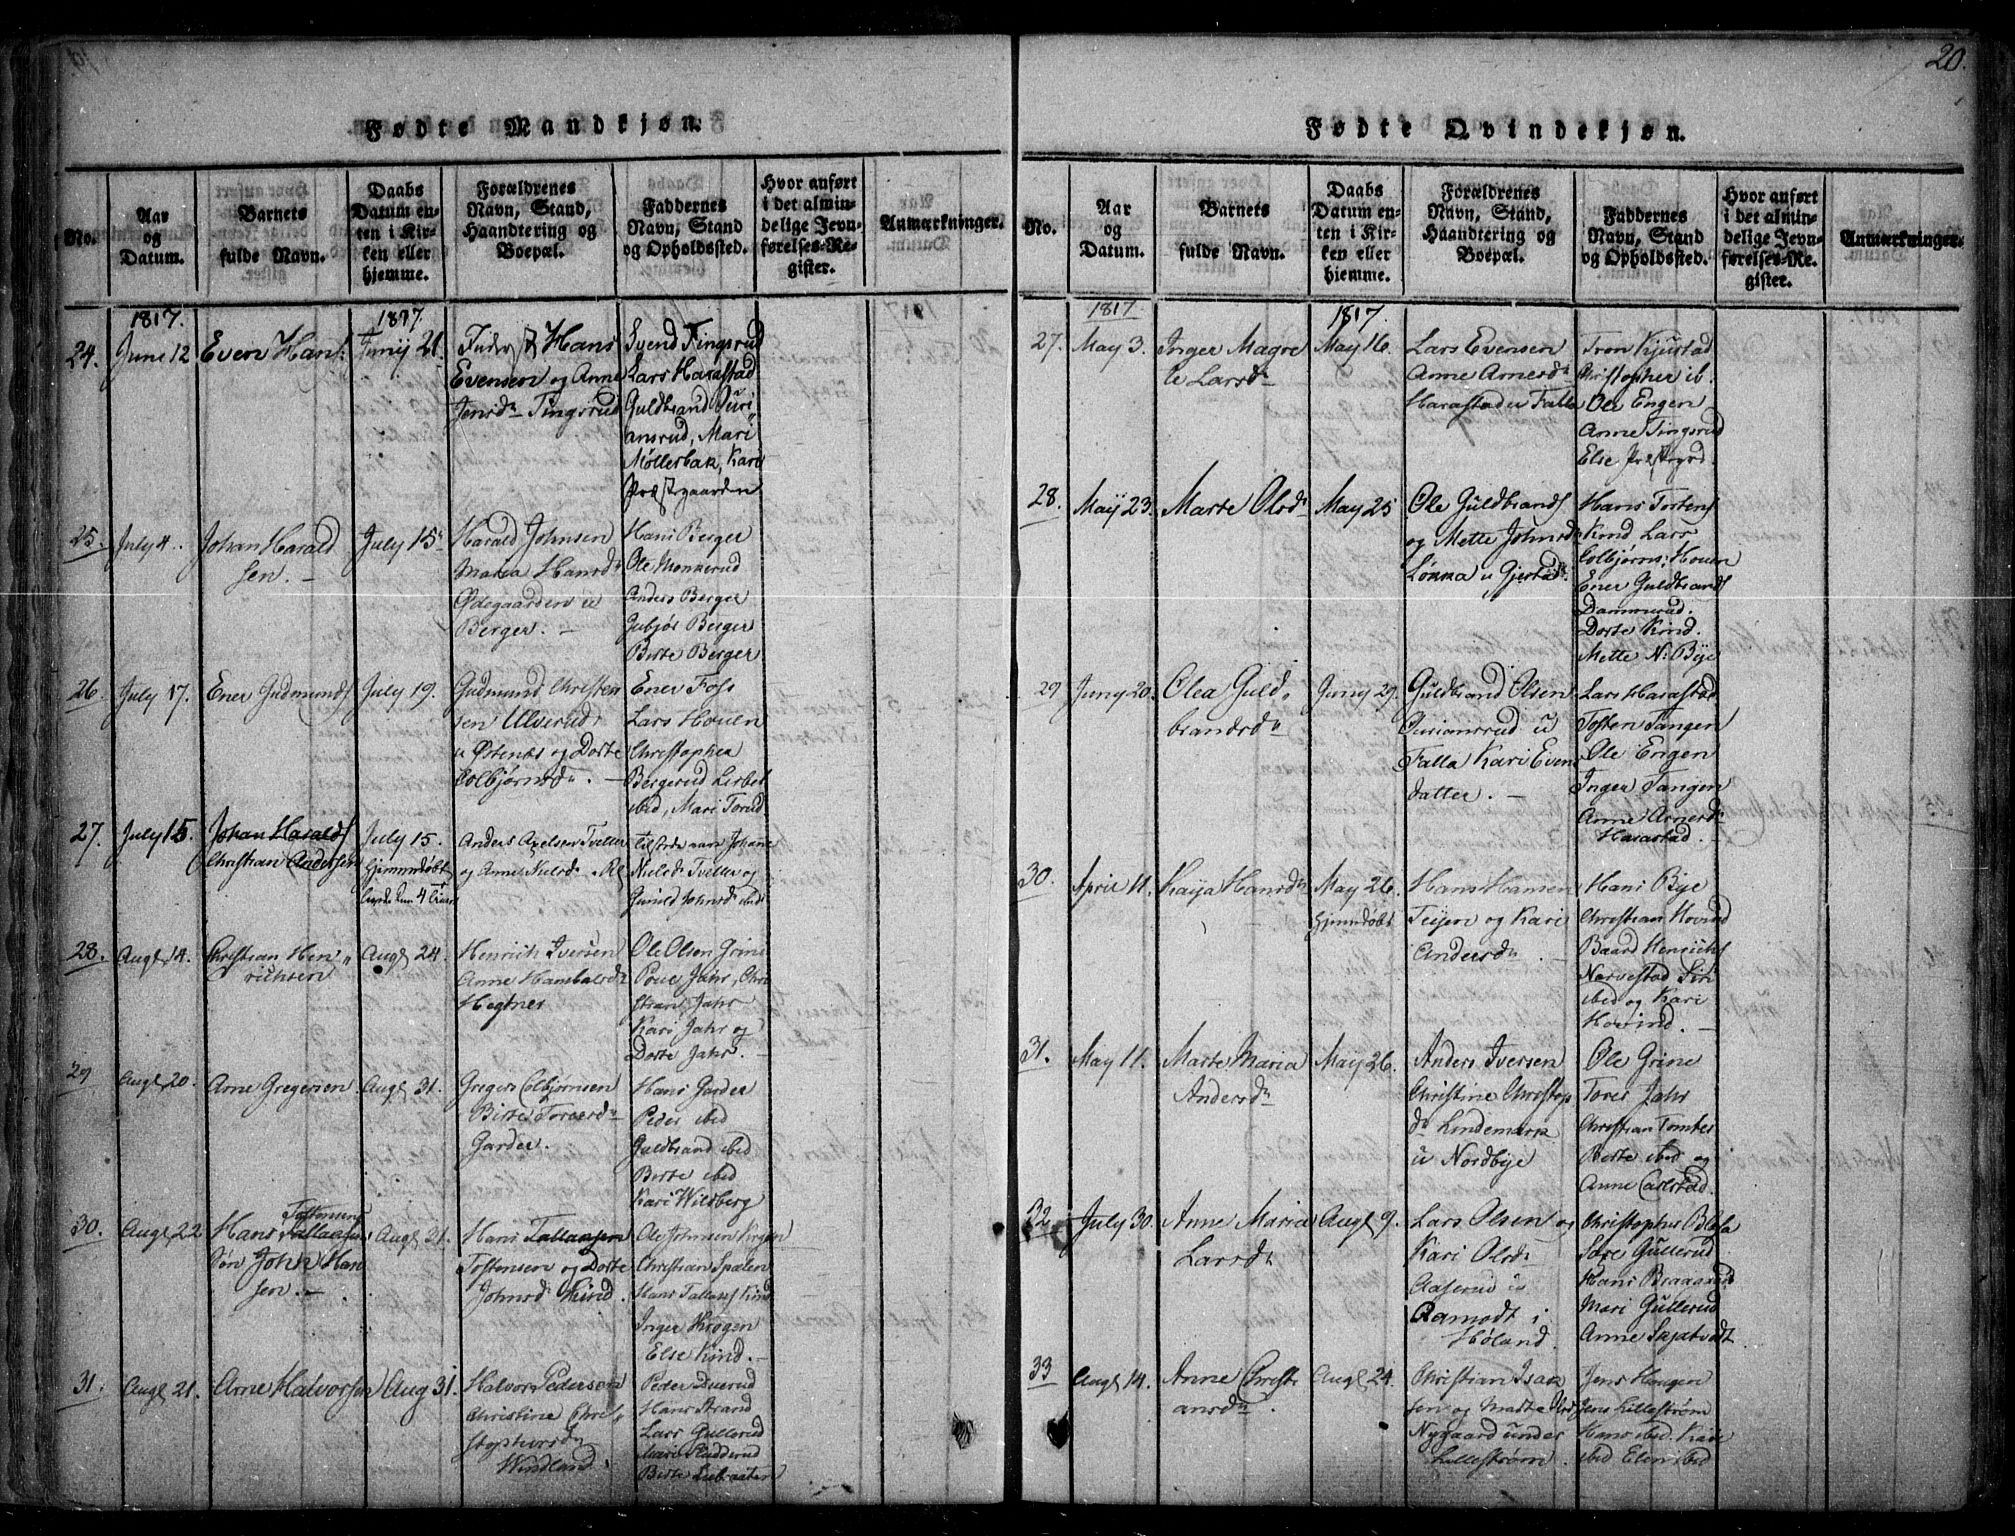 20.
Fødte Mandkjøn.
No.
Aar
og
Datum.
Barnets
fulde Navn.
Daabs
Datum en-
ten i Kir-
ken eller
hjemme.
Forældrenes
Navn, Stand,
Haandtering og
Boepæl.
Faddernes
Navn, Stand
og Opholdssted.
Hvor anført
i det almin-
delige Jevn-
førelses-Re-
gister.
Anmærkninger.
1817.
1817
24.
June 12
Even Hans:
Junij 21
Hans
Evensen og Anne
Jensdr Tingsrud
Svend Tingsrud
Lars Harastad
Guldbrand Juri
ansrud, Mari
Møllerbak, Kari
Præstgaarden
25.
July 4.
Johan Harald
sen. -
July 15
Harald Johnsen
Maria Hansdr
Ødegaarden u
Berger. -
Hans Berger
Ole Monkerud
Anders Berger
Gubjør Berger
Berte Berger
26
July 17.
Ener Gudmunds
July 19.
Gudmund Christen
sen Ulverud
u Østenas og Dorte
Colbjørnsd. -
Ener Foss
Lars Houen
Christopher
Bergerud Lisbet
ibid, Mari Torud
27.
July 15.
Johan Harald
Christian Andersen
July 15.
Hjemmedøbt
Anders Axelsen Tveller
og Anne Nielsdr
Johanne
Nielsdr Tvelle og
Gunild Johnsdr ibid
28.
Augt 14.
Christian Hen
richsen
Augt 24.
Henrich Iversen
Anne Hambalsdr
Hegtnes
Ole Olsen Grine
Poue Jahr, Chri
stian Jahr
Kari Jahr og
Dorte Jahr. -
29
Augt 20.
Arne Gregersen
Augt 31.
Gregers Colbjørnsen
Birte Torersdr
Garder.
Hans Garder
Peder ibid
Guldbrand ibid
Berte ibid
Kari Wilsberg
30.
Augt 22
Tostensens
Hans Tallaksen
søn John Han
sen. -
Augt 21.
Hans Tallaksen
Tostensen og Dorte
Johnsdr Kind.
Ole Johnsen Krogen
Christian Spælen
Hans Tallaks Kind
Inger Krogen
Else Kind. -
31.
Augt 21.
Arne Halvorsen
Aug 31.
Halvor Pedersen
Christine Chri
stophersdr
Windland.
Peder
Hans Strand
Lars Gullerud
Mari
Berte
Fødte Qvindekjøn.
No.
Aar
og
Datum.
Barnets
fulde Navn.
Daabs
Datum en-
ten i Kir-
ken eller
hjemme.
Forældrenes
Navn, Stand,
Haandtering og
Boepæl.
Faddernes
Navn, Stand
og Opholdssted.
Hvor anført
i det almin-
delige Jevn-
førelses-Re-
gister.
Anmærkninger.
1817
1817.
27.
May 3.
Inger Magre
te Larsdr
May 16.
Lars Evensen
Anne Arnesdr
Harastad u Falla
Tron Kjustad
Christopher ib.
Ole Engen
Anne Tingsrud
Else Præstgrd.
28.
May 23.
Marte Olsdr
May 25
Ole Guldbrands
og Mette Johnsdr
Løkka u Gjerstad.
Hans Torsten
Kind Lars
Colbjørns: Houen
Ener Guldbrands
Dammerud.
Dorte Kind.
Mette N: Bye
29
Juny 20.
Olea Guld
brandsdr
Juny 29.
Guldbrand Olsen
Juriansrud u
Falla Kari Evens
datter. -
Lars Harastad
Tosten Tangen
Ole Engen
Inger Tangen
Anne Arnesdr
Harastad.
30.
April 11.
Kaija Hansdr
May 26.
Hjemmedøbt
Hans Hansen
Teijen og Kari
Andersdr. -
Hans Bye
Christian Hovind
Baard Henrichs
Norvestad Siri
ibid og Kari
Hovind. -
31.
May 11.
Marte Maria
Andersdr
May 26.
Anders Iversen
Christine Christop
dr Lindemark
u Nordbye
Ole Grine
Torer Jahr
Christian Tomter
Berte ibid og
Anne Carlstad.
32
July 30.
Anne Maria
Larsdr
Augt 9.
Lars Olsen og
Kari Olsdr
Aaserud u
Aamodt i
Høland
Christopher Blesa
Søre Gullerud
Hans Braarud
Mari Gullerud
Anne
33
Augt 14.
Anne Christi
ansdr.
Augt 24.
Christian Isak
sen og Marte
Nygaard under
Lillestrøm.
Jens Haugen
Jens Lillestrøm
Hans ibid. Kari
ibid Elen ibid